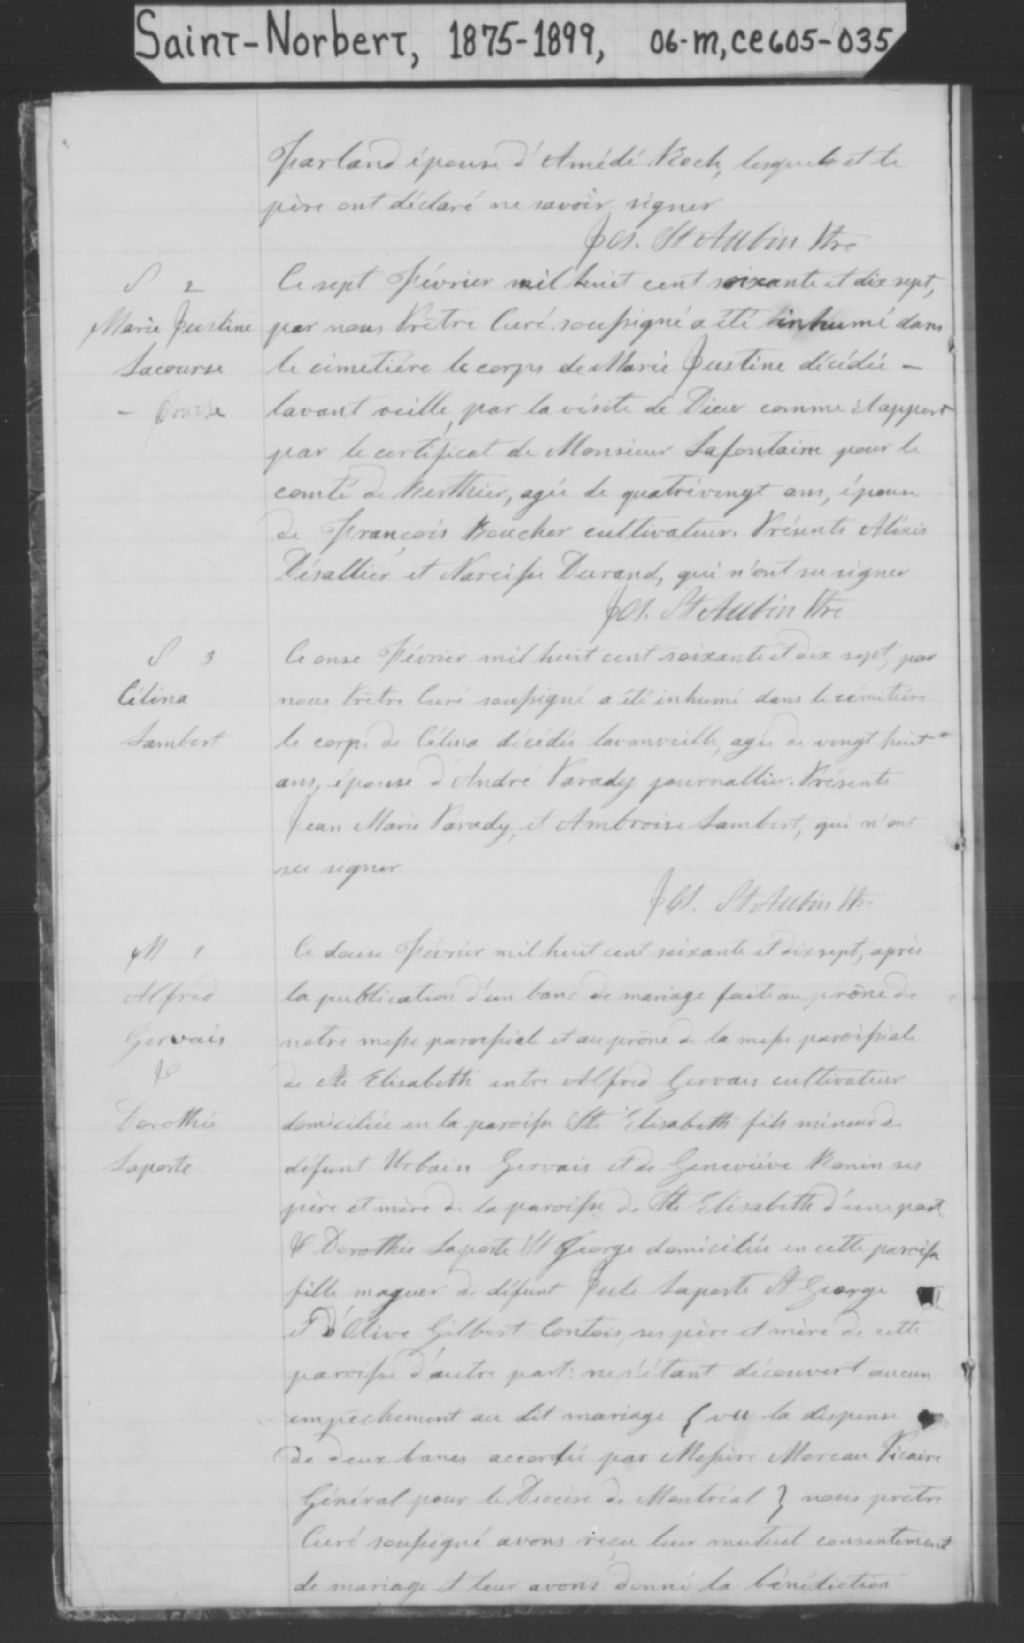 Saint-Norbert, 1875-1899, 06-M, CE605-035
Farland épouse d'Amédé Roch, lesquels et le
père ont déclaré ne savoir signer
Jos. St Aubin Ptre
S 2
Marie Justine
Lacourse
Le sept Février mil huit cent soixante et dix sept,
par nous Prêtre Curé soussigné a été inhumé dans
le cimetière le corps de Marie Justine décédée -
lavant veille, par la visite de Dieu comme il appert
par le certificat de Monsieur Lafontaine pour le
comté de Berthier, agée de quatrevingt ans, épouse
de François Boucher cultivateur. Présents Alexis
Désallier et Narcisse Durand, qui n'ont su signer
Jos. St Aubin Ptre
S 3
Célina
Lambert
Le onse Février mil huit cent soixante et dix sept, par
nous Prêtre Curé soussigné a été inhumé dans le cimetière
le corps de Célina décédée lavanveille, agée de vingt huit
ans, épouse d'André Parady journallier. Présents
Jean Marie Parady, et Ambroise Lambert, qui n'ont
su signer
Jos. St Aubin Ptre
M 1
Alfred
Gervais
&
Dorothée
Laporte
Le douse Février mil huit cent soixante et dix sept, après
la publication d'un banc de mariage faite au prône de
notre messe paroissiale et au prône de la messe paroissiale
de Ste Elisabeth entre Alfred Gervais cultivateur
domiciliée en la paroisse Ste Elisabeth fils mineur de
défunt Urbain Gervais et de Geneviève Bonin ses
père et mère de la paroisse de Ste Elisabeth d'une part
& Dorothée Laporte St George domiciliée en cette paroisse
fille mageur de défunt Jule Laporte St George
et d'Olive Gilbert Contois, ses père et mère de cette
paroisse d'autre part: ne s'étant découvert aucun
empêchement au dit mariage { vu la dispense
de deux bancs accordée par Messire Moreau Vicaire
Général pour le Diocèse de Montréal } nous prêtre
Curé soussigné avons reçu leur mutuel consentement
de mariage et leur avons donné la bénédiction